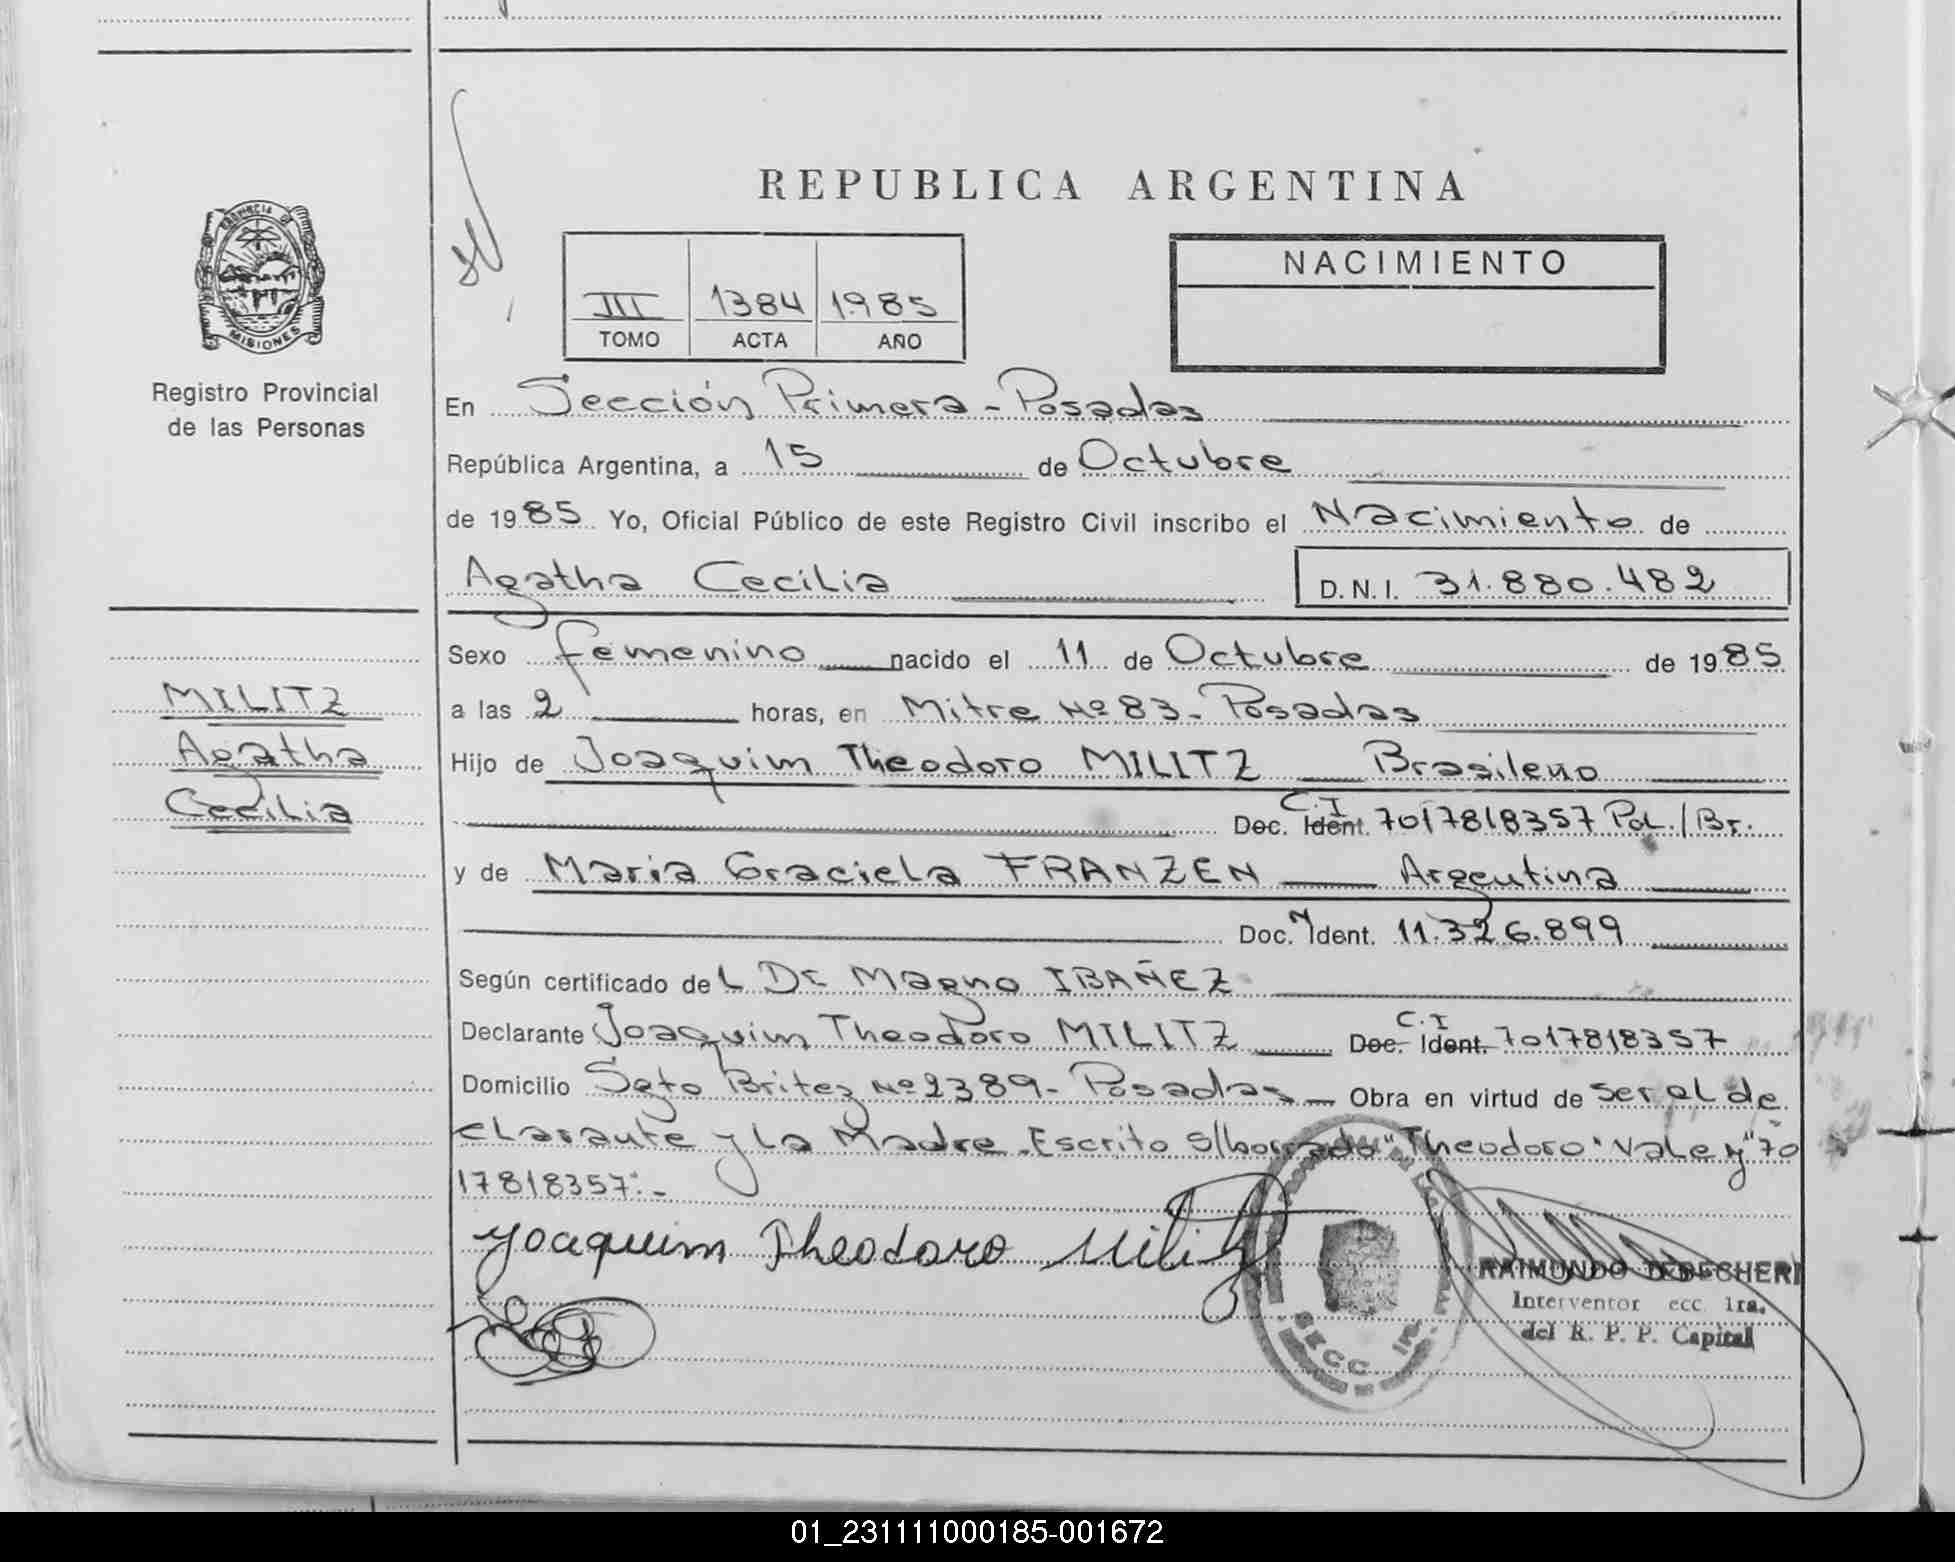 REPUBLICA ARGENTINA
PROVINCIA DE
MISIONES
Registro Provincial
de las Personas
III 1384 1985
TOMO ACTA AÑO
NACIMIENTO
En Sección Primera - Posadas
República Argentina, a 15 de Octubre
de 1985 Yo, Oficial Público de este Registro Civil inscribo el Nacimiento de
Agatha Cecilia D.N.I. 31.880.482
Sexo femenino nacido el 11 de Octubre de 1985
MILITZ
Agatha
Cecilia
a las 2 horas, en Mitre Nº 83 - Posadas
Hijo de Joaquim Theodoro MILITZ Brasileno
C.I
Doc. Ident. 7017818357 Pol./Br.
y de Maria Graciela FRANZEN Argentina
Doc. N Ident. 11.326.899
Según certificado del Dr Magno IBAÑEZ
Declarante Joaquim Theodoro MILITZ C.I Doc. Ident. 7017818357
Domicilio Sgto Britez Nº 2389 - Posadas Obra en virtud de ser el de
clarante y la Madre. Escrito s/borrado "Theodoro" vale y "70
17818357".-
Joaquim Theodoro Militz
SECC 1ra
RAIMUNDO
Interventor ecc 1ra.
del R. P. P. Capital
01_231111000185-001672